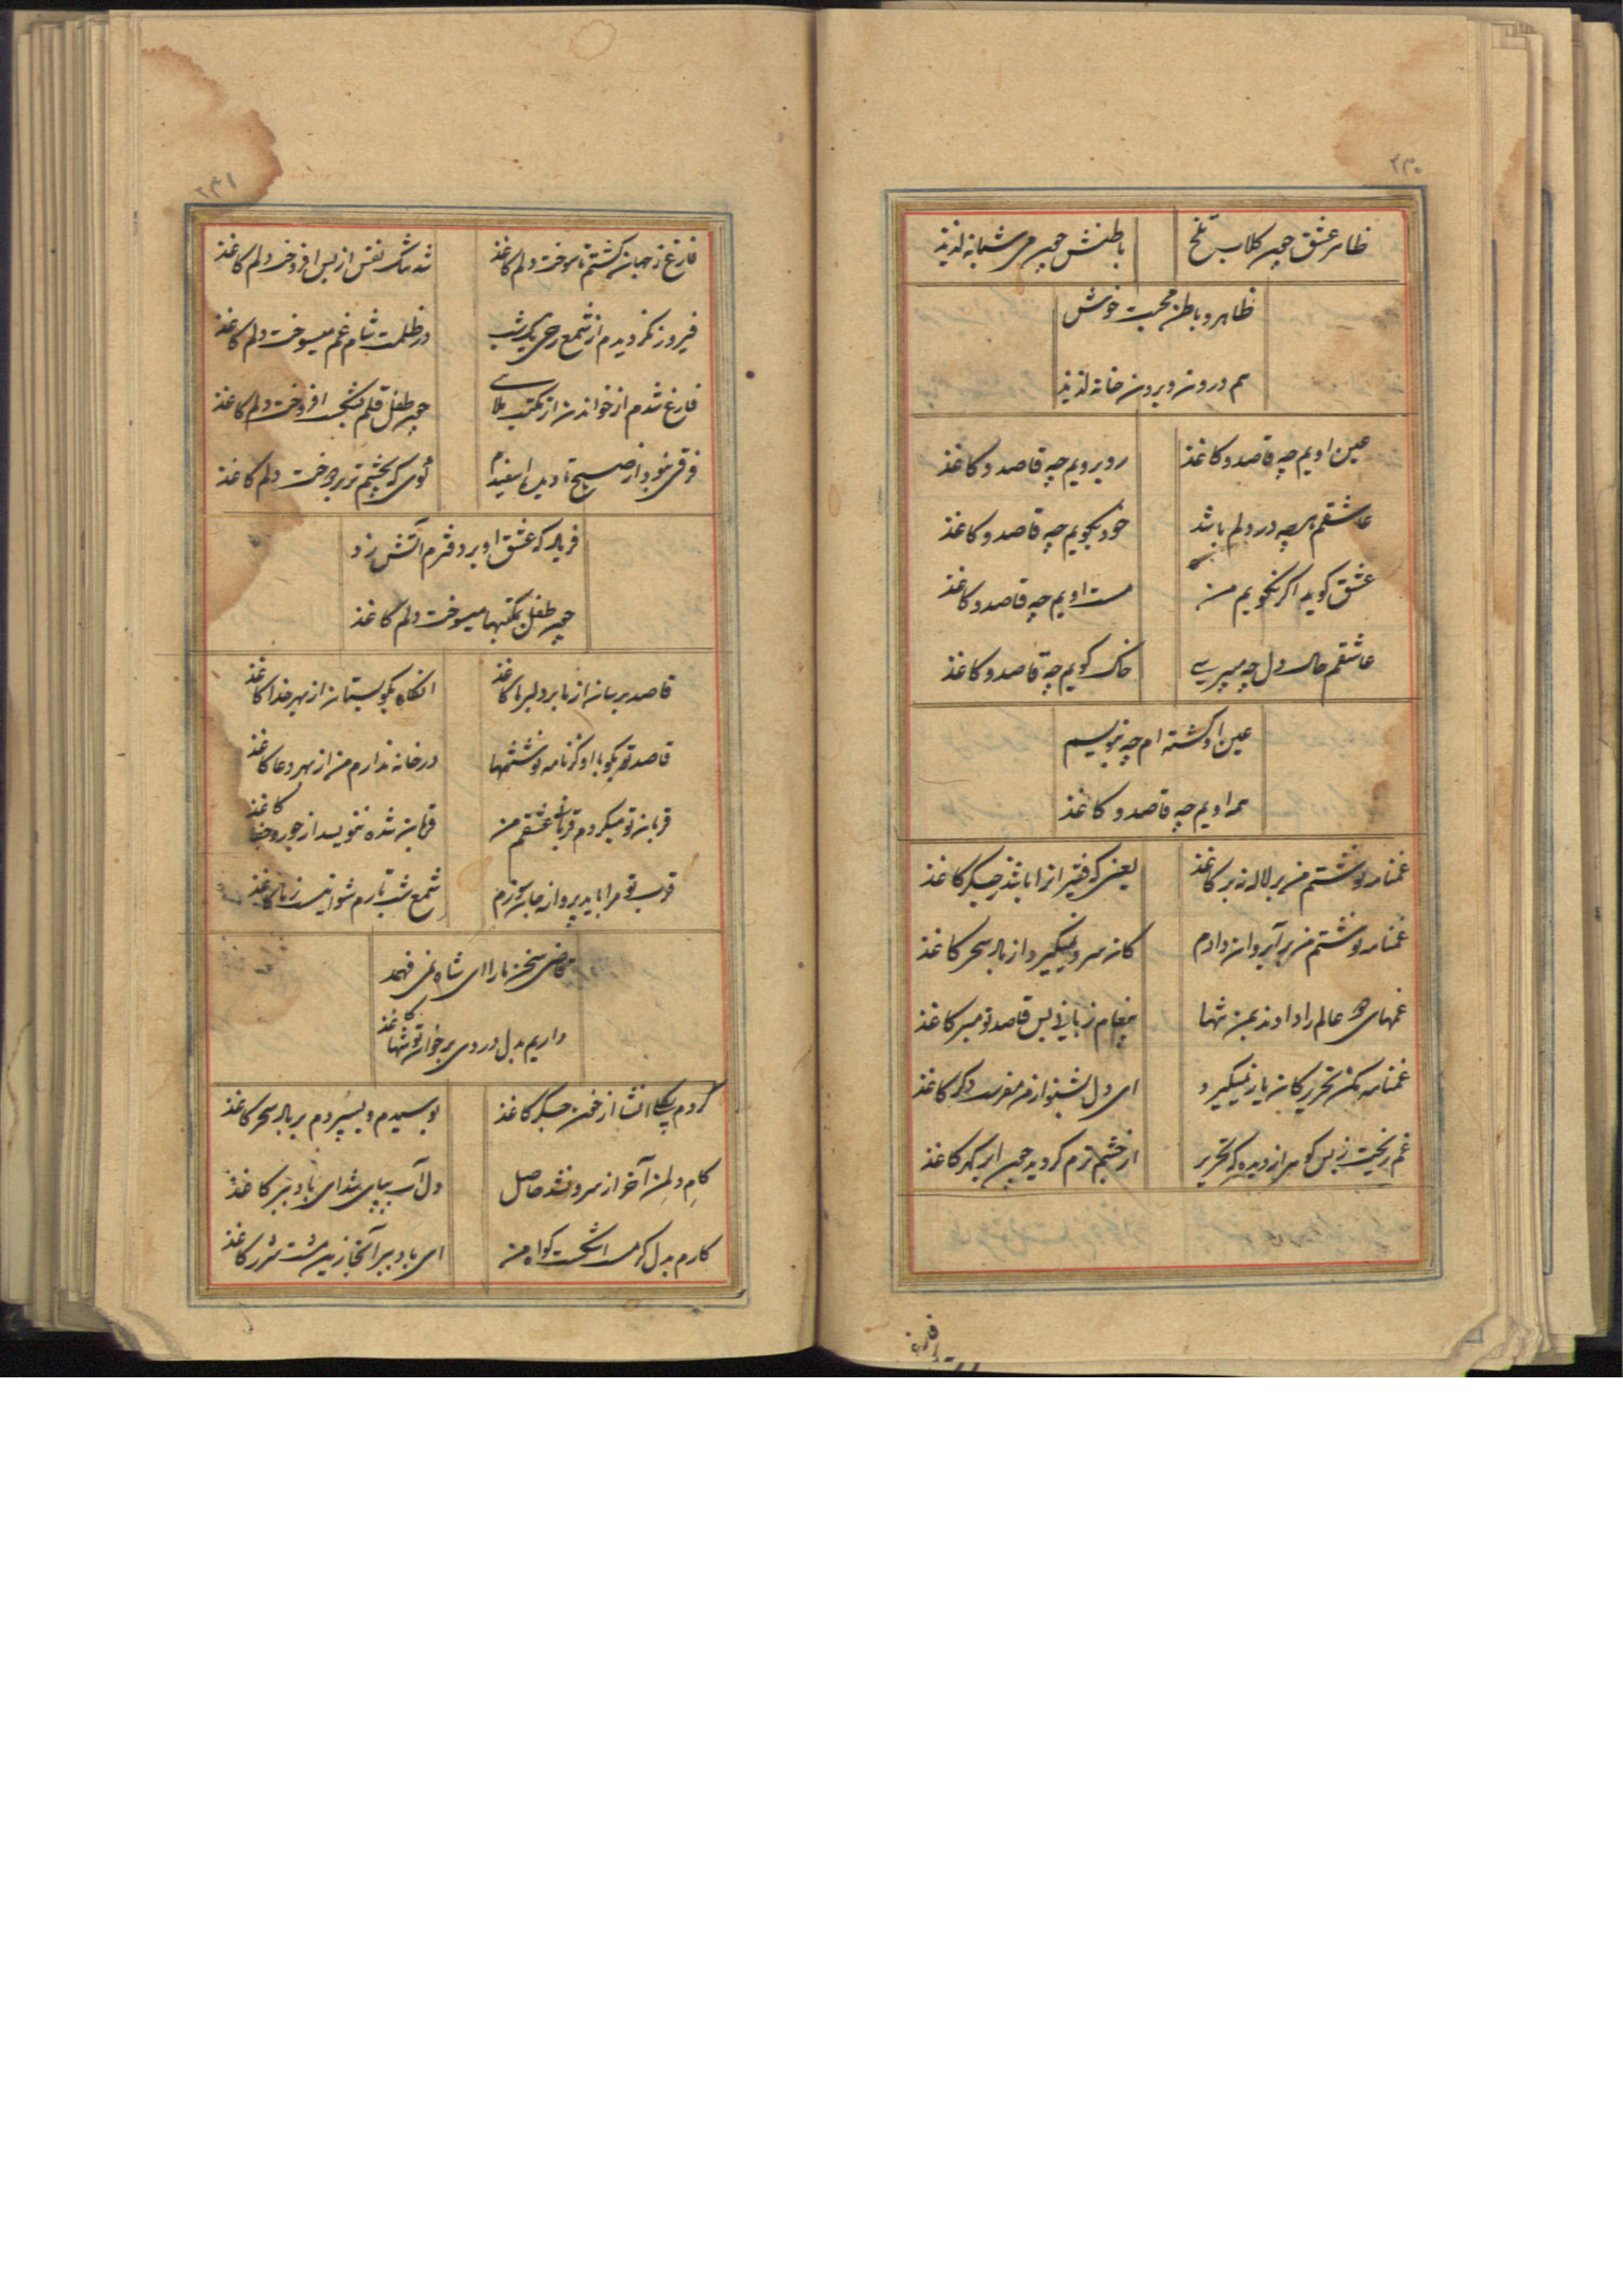 ۲۳۰
ظاهر عشق چون کلاب تلخ
باطنش چون می شبانه لذیذ
ظاهر و باطن محبت خوش
هم درون و برون خانه لذیذ
عین اویم چه قاصد و کاغذ
روبرویم چه قاصد و کاغذ
عاشقم هرچه در دلم باشد
خود بگویم چه قاصد و کاغذ
عشق گوید اگر نگویم من
مست اویم چه قاصد و کاغذ
عاشقم حال دل چه میپرسی
خاک گویم چه قاصد و کاغذ
عین او گشته ام چه بنویسم
همه اویم چه قاصد و کاغذ
غمنامه نوشتم من بر لاله تر کاغذ
یعنی که فقیرانرا باشد جگر کاغذ
غمنامه نوشتم من بر آب روان دادم
کان سرو نمیگیرد از باد سحر کاغذ
غمهای همه عالم را دادند بمن تنها
پیغام زبانی بس قاصد تو مبر کاغذ
غمنامه مکن تحریر کان یار نمیگیرد
ای دل بشنو از من مفرست دگر کاغذ
غم ریخت ز بس گوهر از دیده که تحریر
از چشم ترم گردید چون ابر گهر کاغذ
فارغ
۲۳۱
فارغ ز جهان گشتم تا سوخت دلم کاغذ
شد نفس از بس افروخت دلم کاغذ
فیروز نگردیدم از شمع رخی یک شب
در ظلمت شام غم میسوخت دلم کاغذ
فارغ شدم از خواندن از مکتب ملا
چون طفل قلم بشکست افروخت دلم کاغذ
فرقی نبود از صبح تا
که بچشم تر بر دوخت دلم کاغذ
فریاد که عشق او بر دفترم آتش زد
چون طفل بمکتبها میسوخت دلم کاغذ
قاصد برسان از ما بر دلبر ما کاغذ
آنگاه بگو بستان از بهر خدا کاغذ
قاصد تو بگو با او گر نامه نوشتنها
در خانه ندارم من از بهر دعا کاغذ
قربان تو میگردم قربانی عشقم من
قربان شده ننویسد از جور و جفا کاغذ
قرب تو مرا باید پروانه جان سوزم
شمع شب تارم شو
قاضی سخن ما را ای شاه نمی فهمد
داریم بدل دردی بر خوان تو شها کاغذ
کردم انشا از خون جگر کاغذ
بوسیدم و بسپردم بر باد سحر کاغذ
کام دل من آخر از سرو نشد حاصل
دل آب بپای شد ای باد ببر کاغذ
کارم بدل گرمست اشکست گواه من
ای باد ببر آنجا زین مشت شرر کاغذ